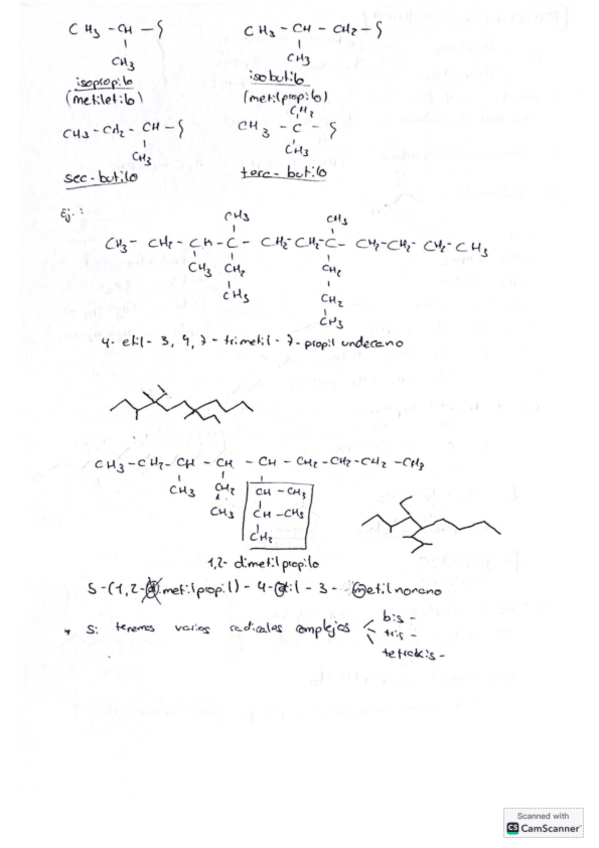 CH3 - CH - CH3 - CH - CH2 -
CH3 CH3
isopropilo isobutilo
(metiletilo) (metilpropilo)
CH3 - CH2 - CH - CH3 - C -
CH3 CH3
sec-butilo terc-butilo
Ej.:
CH3 CH3
CH3 - CH2 - CH - C - CH2 - CH2 - C - CH2 - CH2 - CH2 - CH3
CH3 CH2 CH2
CH3 CH2
CH3
4-etil-3,4,7-trimetil-7-propil undecano
CH3 - CH2 - CH - CH - CH - CH2 - CH2 - CH2 - CH3
CH3 CH2 CH - CH3
CH3 CH - CH3
CH2
1,2-dimetilpropilo
5-(1,2-dimetilpropil)-4-etil-3-metilnonano
* Si tenemos varios radicales complejos bis-
tris-
tetrakis-
Scanned with
CS CamScanner